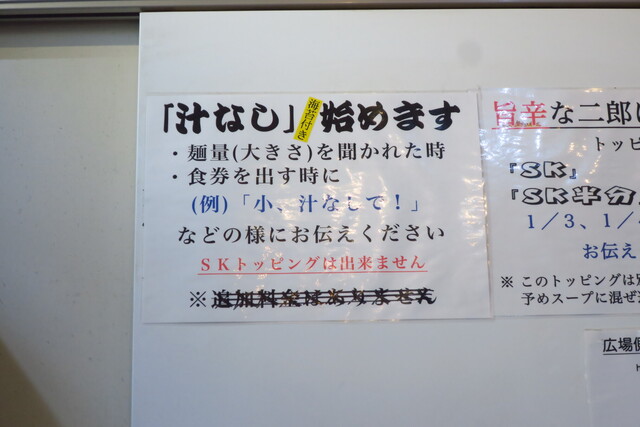 「汁なし」海苔付き 始めます
・麺量(大きさ)を聞かれた時
・食券を出す時に
(例)「小、汁なしで!」
などの様にお伝えください
SKトッピングは出来ません
※追加料金はありません
旨辛な二郎
トッピ
『SK』
『SK半分
1/3、1/
お伝え
※このトッピングは
予めスープに混ぜ
広場